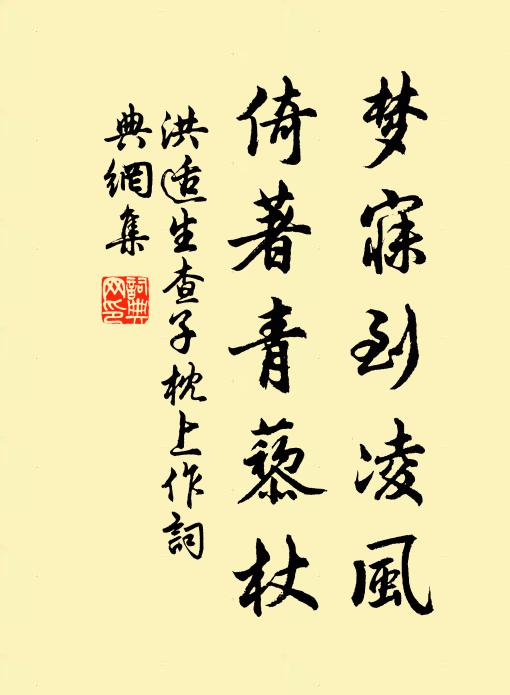 梦寐到凌風
倚著青藜杖
洪适生查子枕上作詞
典網集
詞典网印